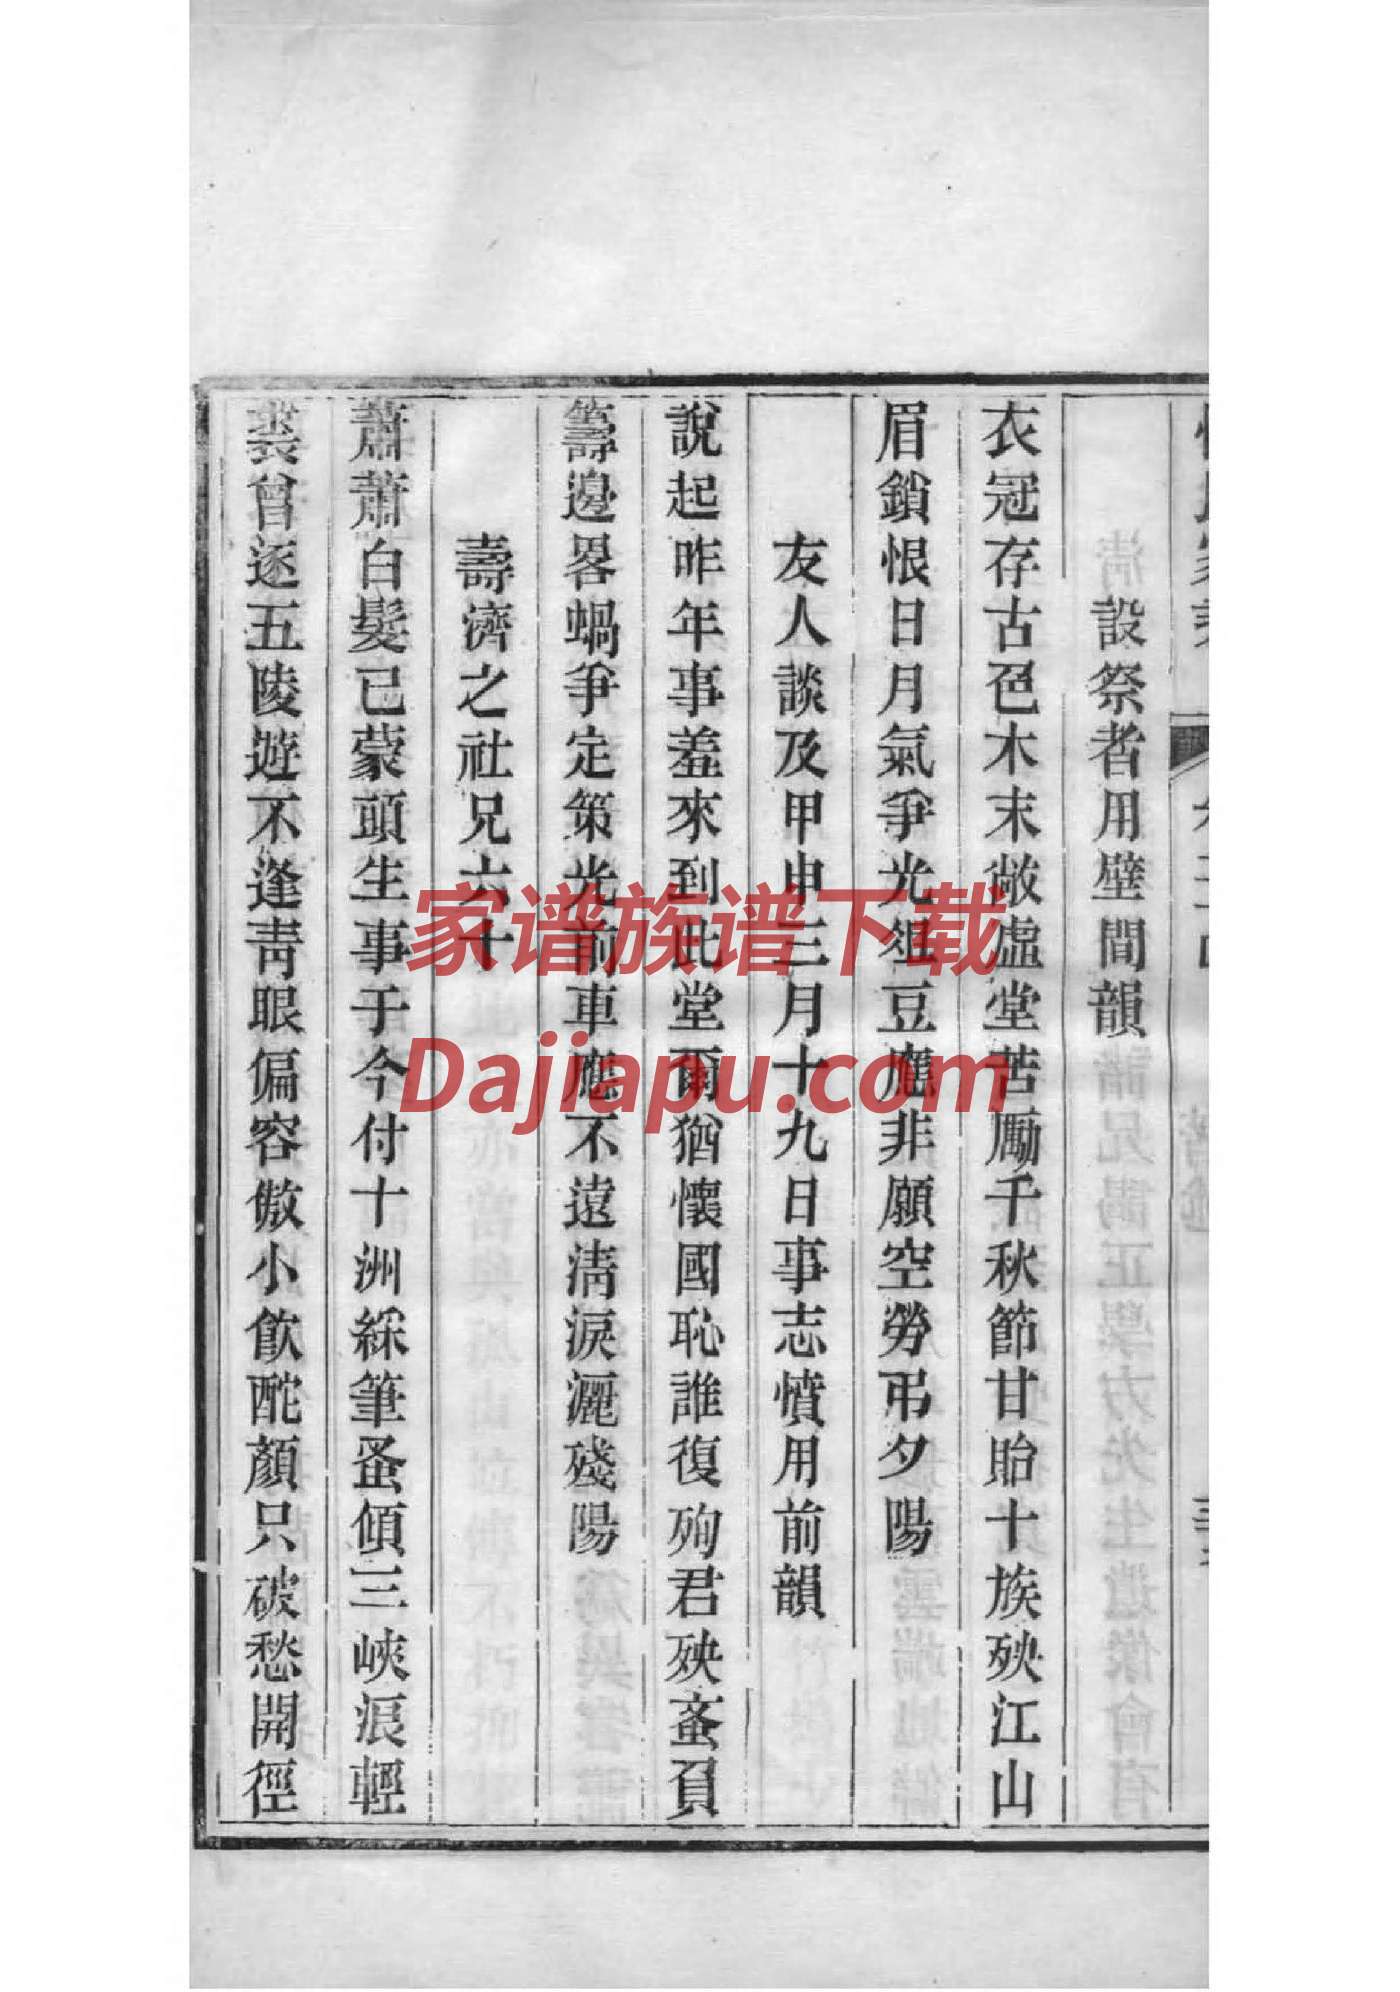 設祭者用壁間韻
衣冠存古色木末敞虛堂苦勵千秋節甘貽十族殃江山
眉鎖恨日月氣爭光俎豆應非願空勞弔夕陽
友人談及甲申三月十九日事志憤用前韻
說起昨年事羞來到此堂爾猶懷國恥誰復殉君殃蚉負
籌邊畧蝸爭定策光前車應不遠淸淚灑殘陽
壽濟之社兄六十
蕭蕭白髮已蒙頭生事于今付十洲綵筆蚤傾三峽浪輕
裘曾逐五陵遊不逢靑眼偏容傲小飮酡顏只破愁開徑
家谱族谱下载
Dajiapu.com